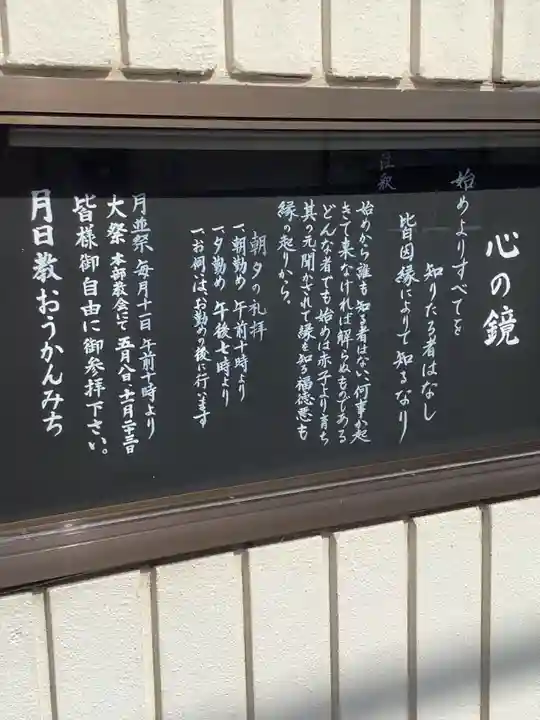 心の鏡
始めよりすべてを
知りたる者はなし
皆因縁によりて知るなり
註釈
始めから誰も知る者はない、何事か起
きて来なければ解らぬものである
どんな者でも始めは赤子より育ち
其の元聞かされて縁を知る福徳悪も
縁の起りから。
朝夕の礼拝
一、朝勤め 午前十時より
一、夕勤め 午後七時より
一、お伺いは、お勤めの後に行います
月並祭 毎月十一日 午前十時より
大祭 本部教会にて 五月八日、十一月二十三日
皆様御自由に御参拝下さい。
月日教おうかんみち